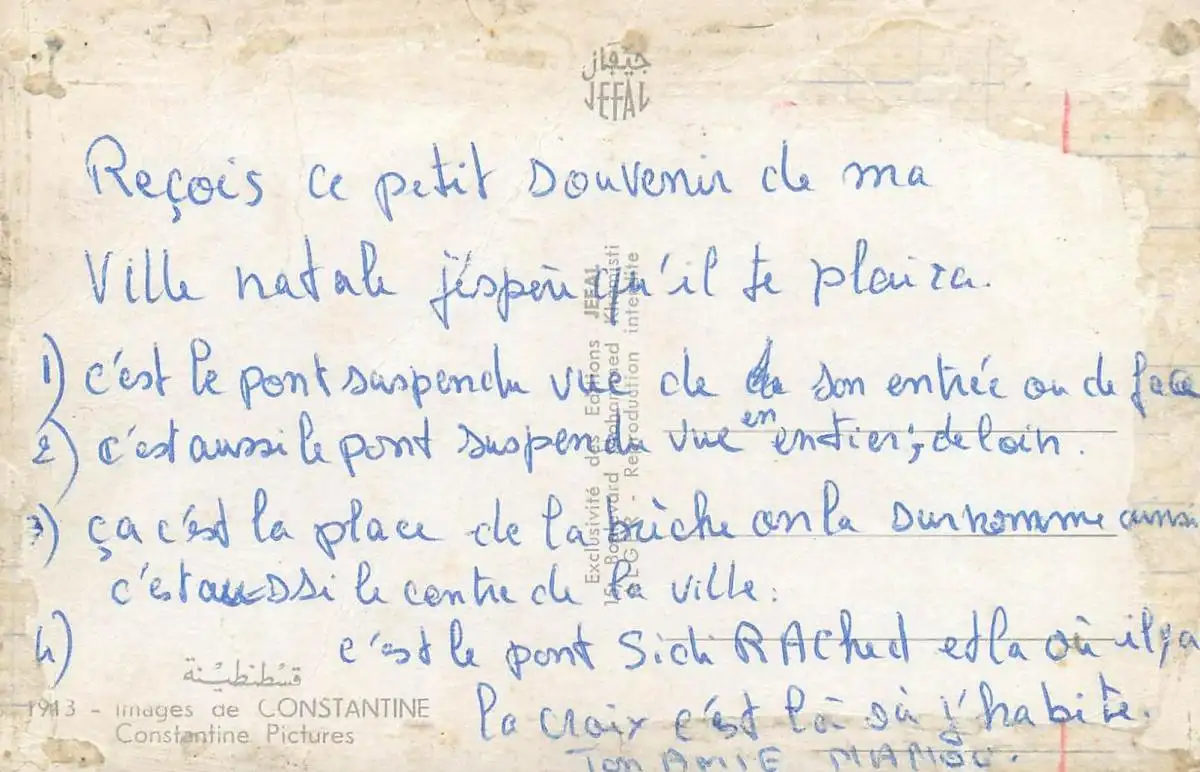 جيفال
JEFAL
Reçois ce petit souvenir de ma
Ville natale j'éspère qu'il te plaira.
1) c'est le pont suspendu vue de son entrée ou de face
2) c'est aussi le pont suspendu vue en entier, de loin.
3) ça c'est la place de la brèche on la surnomme ainsi
c'est aussi le centre de la ville.
4) c'est le pont Sidi RAched et la où il y a
la croix c'est là où j'habite.
Ton AMIE
Exclusivité des Editions JEFAL
Boulevard Mohamed Khemisti
ALGER - Reproduction interdite
قسنطينة
1913 - Images de CONSTANTINE
Constantine Pictures